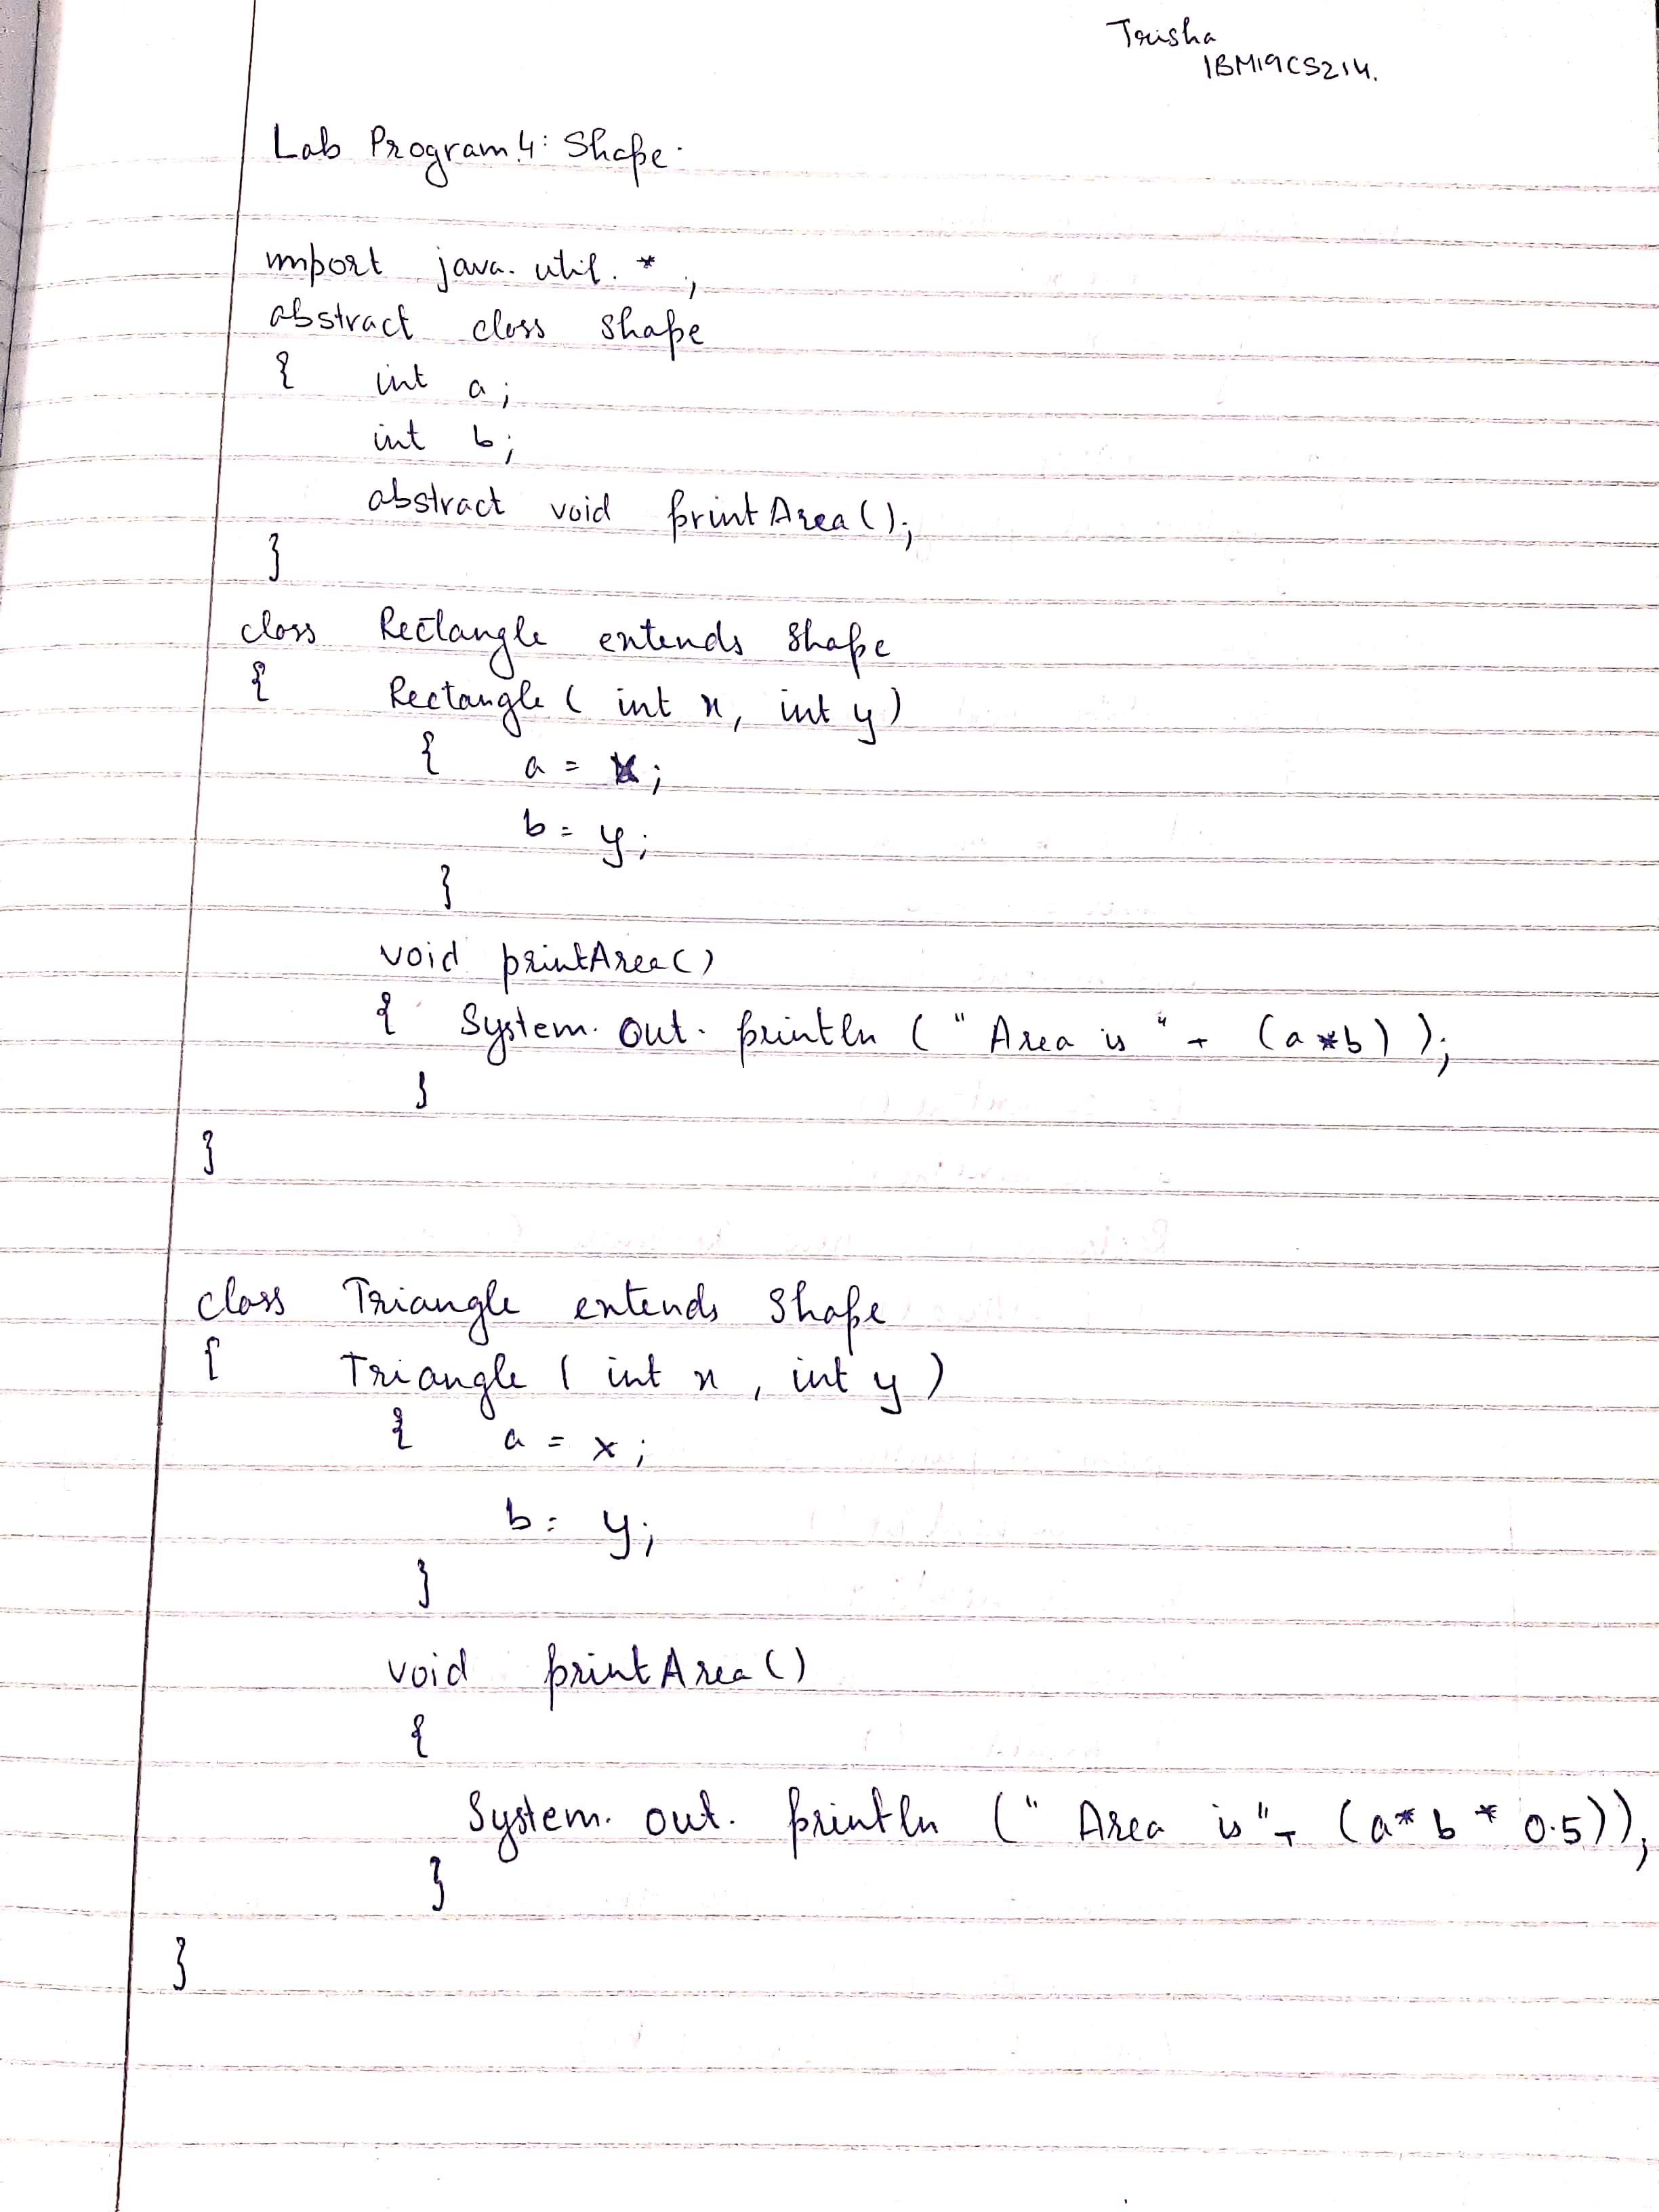 Trisha
1BM19CS214.
Lab Program 4: Shape.
import java.util.*;
abstract class shape
{ int a;
int b;
abstract void printArea();
}
class Rectangle extends shape
{ Rectangle ( int x, int y)
{ a = x;
b = y;
}
void printArea()
{ System.out.println (" Area is " + (a*b) );
}
}
class Triangle extends shape
{ Triangle ( int x , int y )
{ a = x ;
b = y;
}
void printArea()
{
System.out.println (" Area is" + (a* b * 0.5));
}
}